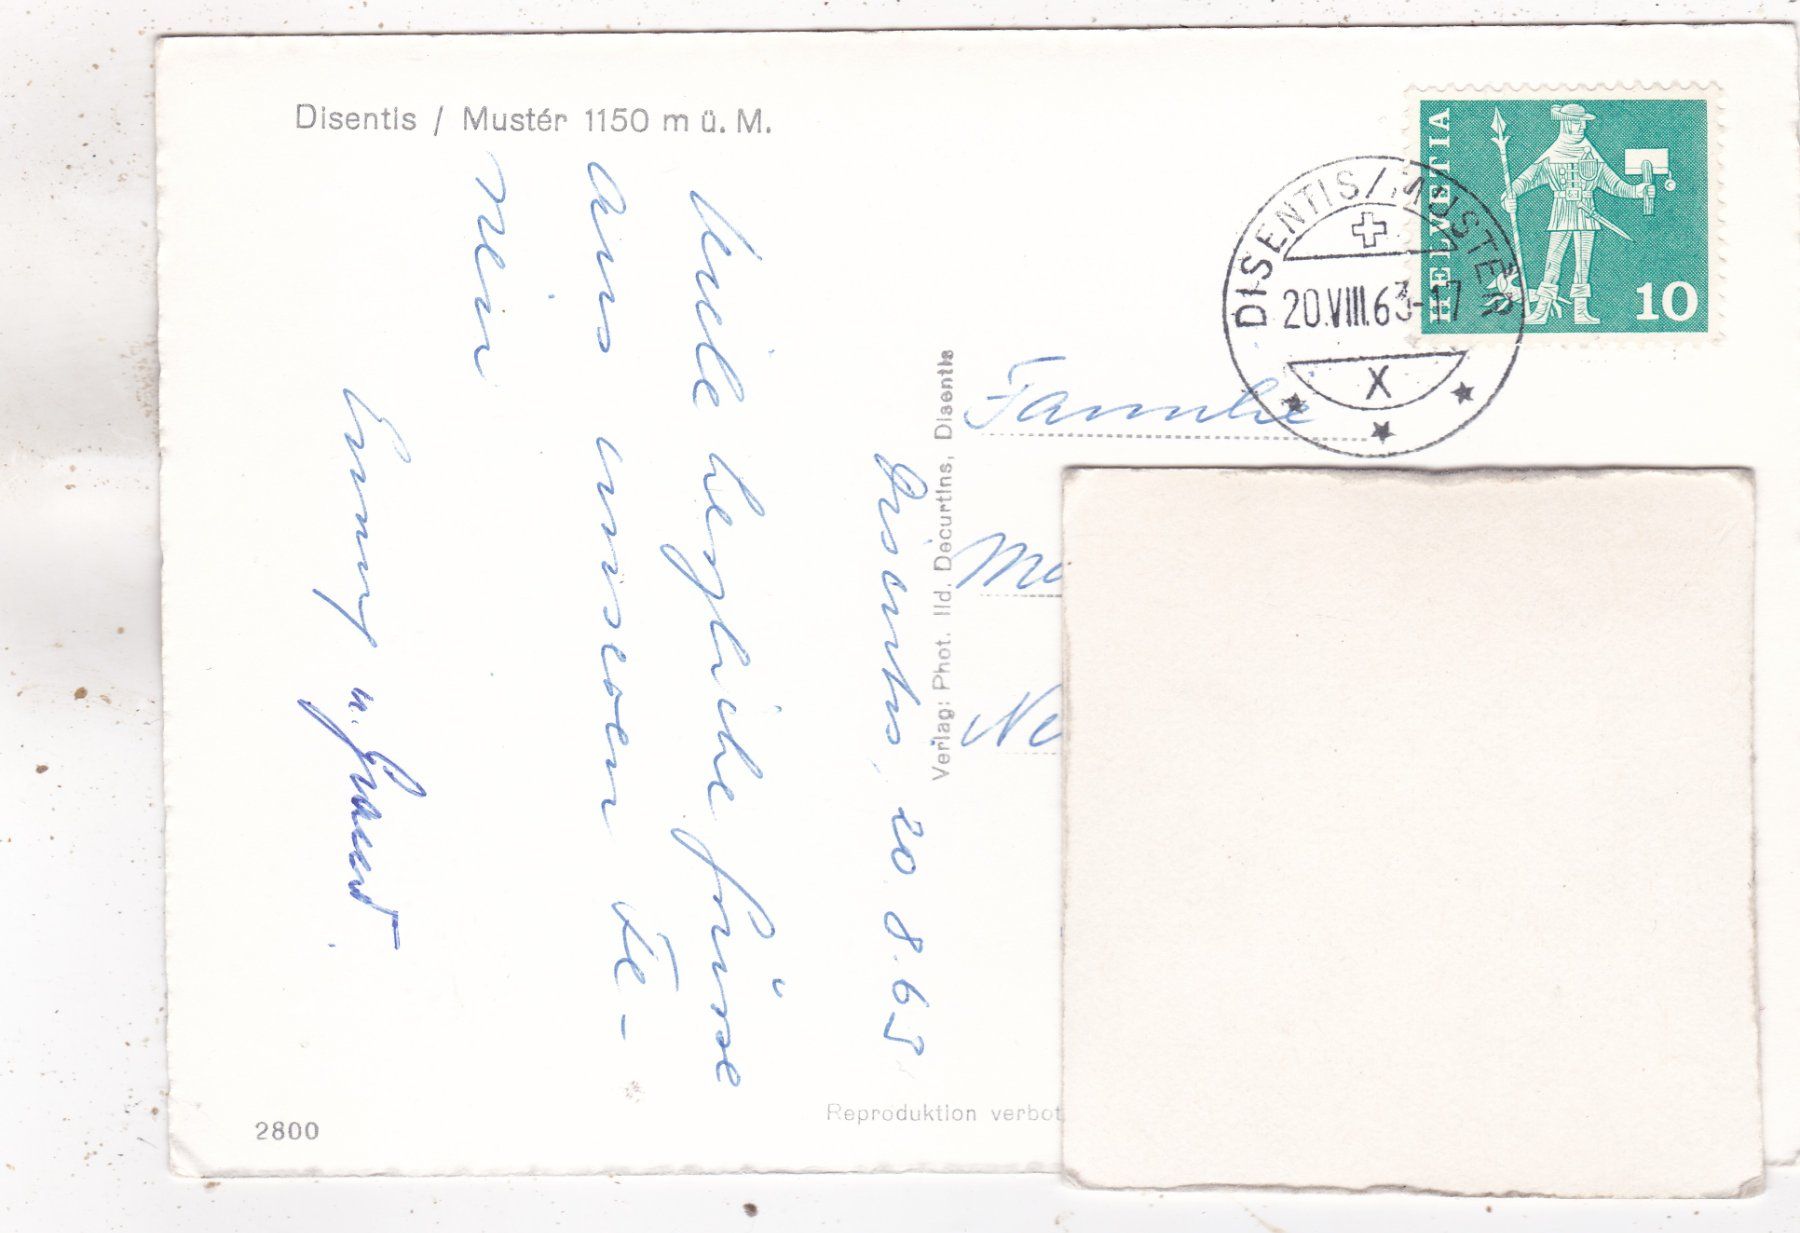 Disentis / Mustér 1150 m ü. M.
Disentis, 20. 8. 63
Viele herzliche Grüsse
aus unseren Fe-
rien
Emmy u.
HELVETIA
10
DISENTIS/MUSTÉR
20.VIII.63-17
X
Familie
Verlag: Phot. Ild. Decurtins, Disentis
Reproduktion verbot
2800